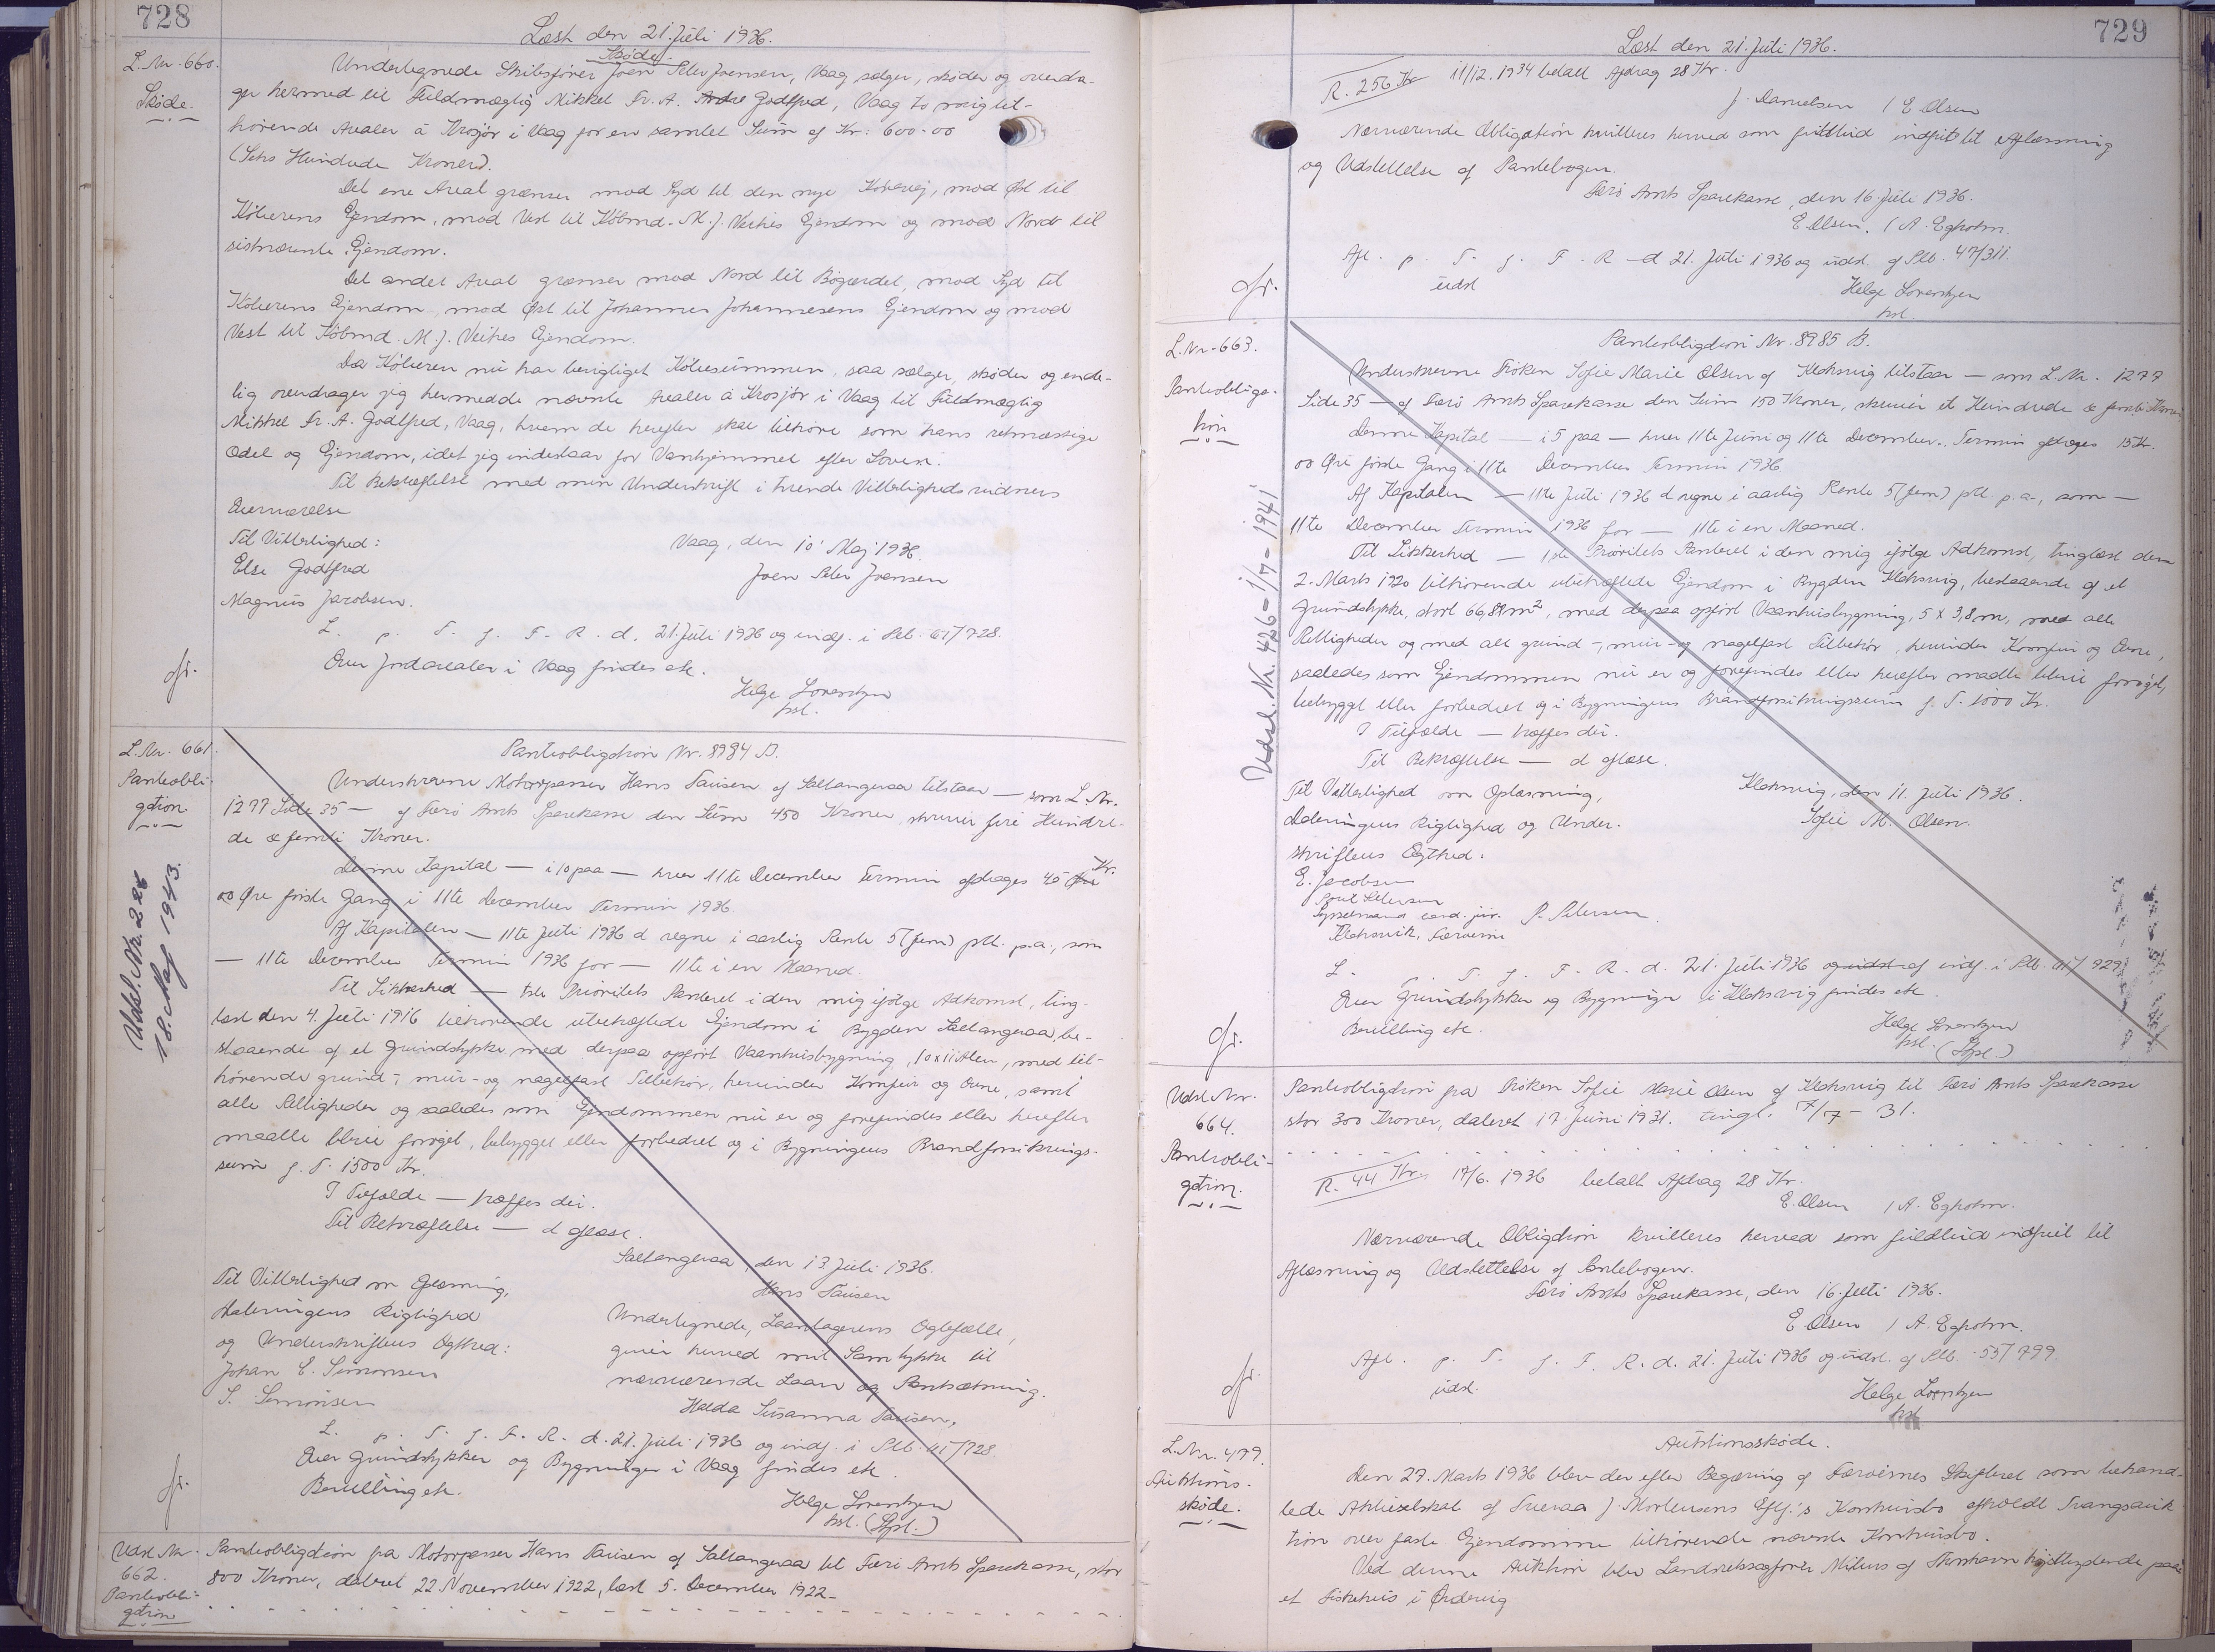 728
Læst den 21. Juli 1936.
L. Nr. 660.
Skøde.
Skøde.
Undertegnede Skibsfører Joen Peter Joensen, Vaag, sælger, skøder og overdra-
ger hermed til Fuldmægtig Mikkel Fr. A. Godtfred, Vaag to mig til-
hørende Arealer á Krosjør i Vaag for en samlet Sum af Kr: 600-00
(Seks Hundrede Kroner).
Det ene Areal grænser mod Syd til den nye Kørevej, mod Øst til
Køberens Ejendom, mod Vest til Købmd. M. J. Veihes Ejendom og mod Nord til
sistnævnte Ejendom.
Det andet Areal grænser mod Nord til Bøgærdet, mod Syd til
Køberens Ejendom, mod Øst til Johannes Johannesens Ejendom og mod
Vest til Købmd. M. J. Veihes Ejendom.
Da Køberen nu har berigtiget Købesummen, saa sælger, skøder og ende-
lig overdrager jeg hermedde nævnte Arealer á Krosjør i Vaag til Fuldmægtig
Mikkel Fr. A. Godtfred, Vaag, hvem de herefter skal tilhøre som hans retmæssige
Odel og Ejendom, idet jeg indestaar for Vanhjemmel efter Loven.
Til Bekræftelse med min Underskrift i tvende Vitterlighedsvidners
Overværelse
Til Vitterlighed:
Vaag, den 10 Maj 1936.
Else Godtfred
Joen Peter Joensen
Magnus Jacobsen.
L. p. T. f. F. R. d. 21. Juli 1936 og indf. i Plb. 61/728.
Over Jordarealer i Vaag findes etc.
Helge Lorentzen
kst.
L. Nr. 661.
Panteobli-
gation
Udsl. Nr. 228
18. Maj 1943.
Panteobligation Nr. 8984 B.
Underskrevne Motorpasser Hans Pausen af Saltangeraa tilstaar — som L. Nr.
1277 Side 35 — af Færø Amts Sparekasse den Sum 450 Kroner, skriver fire Hundre-
de & femti Kroner.
Denne Kapital — i 10 paa — hver 11te December Termin afdrages 45 Kr.
00 Øre første Gang i 11te December Termin 1936.
Af Kapitalen — 11te Juli 1936 d regne i aarlig Rente 5 (fem) pCt. p.a., som
— 11te December Termin 1936 for — 11te i en Maaned.
Til Sikkerhed — 1ste Prioritets Panteret i den mig ifølge Adkomst, ting-
læst den 4. Juli 1916 tilhørende ubehæftede Ejendom i Bygden Saltangeraa, be-
staaende af et Grundstykke med derpaa opført Vaanhusbygning, 10 x 11 Alen, med til-
hørende grund-, mur- og nagelfast Tilbehør, herunder Komfur og Ovne, samt
alle Rettigheder og saaledes som Ejendommen nu er og forefindes eller herefter
maatte blive forøget, bebygget eller forbedret og i Bygningens Brandforsikrings-
sum f. T. 1500 Kr.
I Tilfælde — træffes dei.
Til Bekræftelse — d oplæse.
Saltangeraa, den 13. Juli 1936.
Til Vitterlighed om Oplæsning,
Hans Pausen
Dateringens Rigtighed
Undertegnede, Laantagerens Ægtefælle,
og Underskriftens Ægthed:
giver herved mit Samtykke til
Johan E. Simonsen
nærværende Laan og Pantsætning.
S. Simonsen
Halda Susanna Pausen.
L. p. T. f. F. R. d. 21. Juli 1936 og indf. i Plb. 61/728.
Over Grundstykker og Bygninger i Vaag findes etc.
Bevilling etc.
Helge Lorentzen
kst. (Stpl.)
Udsl. Nr.
662.
Panteobli-
gation
Panteobligation fra Motorpasser Hans Pausen af Saltangeraa til Færø Amts Sparekasse, stor
800 Kroner, dateret 22 November 1922, læst 5. December 1922.
729
Læst den 21. Juli 1936.
R. 256 Kr. 11/12. 1934 betalt Afdrag 28 Kr.
J. Danielsen / E Olsen
Nærværende Obligation kvitteres herved som fuldtud indfriet til Aflæsning
og Udslettelse af Pantebogen.
Færø Amts Sparekasse, den 16 Juli 1936.
E. Olsen. / A. Egholm.
Afl. p. T. f. F. R. d 21. Juli 1936 og udsl. af Plb. 47/311.
udsl
Helge Lorentzen
kst.
L. Nr. 663.
Panteobliga-
tion
Udsl. Nr. 426 - 1/7 - 1941
Panteobligation Nr. 8985 B.
Underskrevne Frøken Sofie Marie Olsen af Klaksvig tilstaar — som L. Nr. 1277
Side 35 — af Færø Amts Sparekasse den Sum 150 Kroner, skriver et Hundrede & femti Kroner
Denne Kapital — i 5 paa — hver 11te Juni og 11te December Termin afdrages 15 Kr.
00 Øre første Gang i 11te December Termin 1936
Af Kapitalen — 11te Juli 1936 d regne i aarlig Rente 5 (fem) pCt. p.a., som —
11te December Termin 1936 for — 11te i en Maaned.
Til Sikkerhed — 1ste Prioritets Panteret i den mig ifølge Adkomst, tinglæst den
2. Marts 1920 tilhørende ubehæftede Ejendom i Bygden Klaksvig, bestaaende af et
Grundstykke, stort 66,88 m², med derpaa opført Vaanhusbygning, 5 x 3,8 m, med alle
Rettigheder og med alt grund-, mur- og nagelfast Tilbehør, herunder Komfur og Ovne,
saaledes som Ejendommen nu er og forefindes eller herefter maatte blive forøget,
bebygget eller forbedret og i Bygningens Brandforsikringssum f. T. 1000 Kr.
I Tilfælde — træffes dei.
Til Bekræftelse — d oplæse.
Til Vitterlighed om Oplæsning,
Klaksvig, den 11. Juli 1936.
Dateringens Rigtighed og Under-
Sofie M. Olsen.
skriftens Ægthed:
E. Jacobsen
Poul Petersen
Sysselmand cand. jur. P. Petersen.
Klaksvik, Færøerne
L. p. T. f. F. R. d. 21. Juli 1936 og indf. i Plb. 61/729.
Over Grundstykker og Bygninger i Klaksvig findes etc.
Bevilling etc.
Helge Lorentzen
kst. (Stpl.)
Udsl. Nr.
664.
Panteobli-
gation.
Panteobligation fra Frøken Sofie Marie Olsen af Klaksvig til Færø Amts Sparekasse
stor 300 Kroner, dateret 17 Juni 1931. tingl. 7/7 - 31.
R. 44 Kr. 17/6. 1936 betalt Afdrag 28 Kr.
E. Olsen / A. Egholm.
Nærværende Obligation kvitteres herved som fuldtud indfriet til
Aflæsning og Udslettelse af Pantebogen.
Færø Amts Sparekasse, den 16. Juli 1936.
E Olsen / A. Egholm.
Afl. p. T. f. F. R. d. 21. Juli 1936 og udsl. af Plb. 55/799.
udsl.
Helge Lorentzen
kst.
L. Nr. 479.
Auktions-
skøde.
Auktionsskøde.
Den 27. Marts 1936 blev der efter Begæring af Færøernes Skifteret som behand-
lede Aktieselskab af Tveraa J. Mortensens Eftf.'s Konkursbo afholdt Tvangsauk-
tion over faste Ejendomme tilhørende nævnte Konkursbo.
Ved denne Auktion blev Landsretssagfører Mikines af Thorshavn højstbydende paa
et Fiskehus i Ørdevig